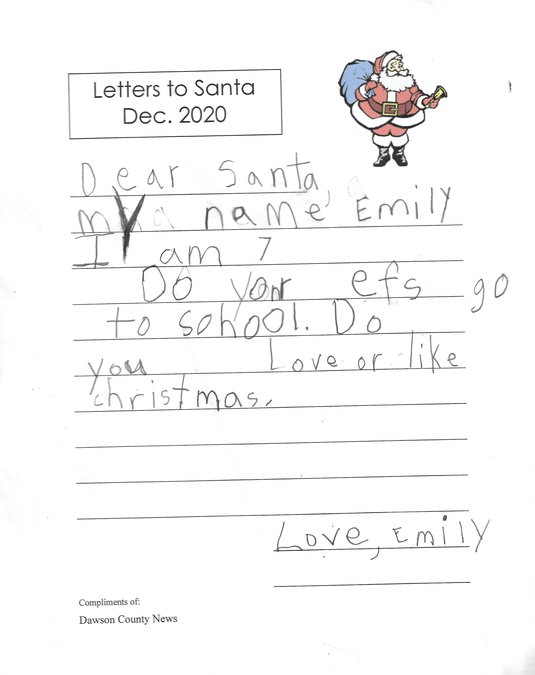 Letters to Santa
Dec. 2020
Dear Santa,
my name Emily
I am 7
Do your efs go
to school. Do
you Love or like
christmas.
Love, Emily
Compliments of:
Dawson County News